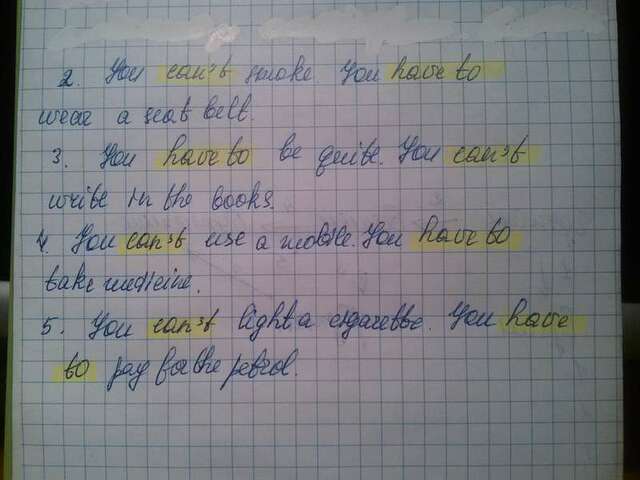 2. You can't smoke. You have to
wear a seat belt.
3. You have to be quite. You can't
write in the books.
4. You can't use a mobile. You have to
take medicine.
5. You can't light a cigarette. You have
to pay for the petrol.